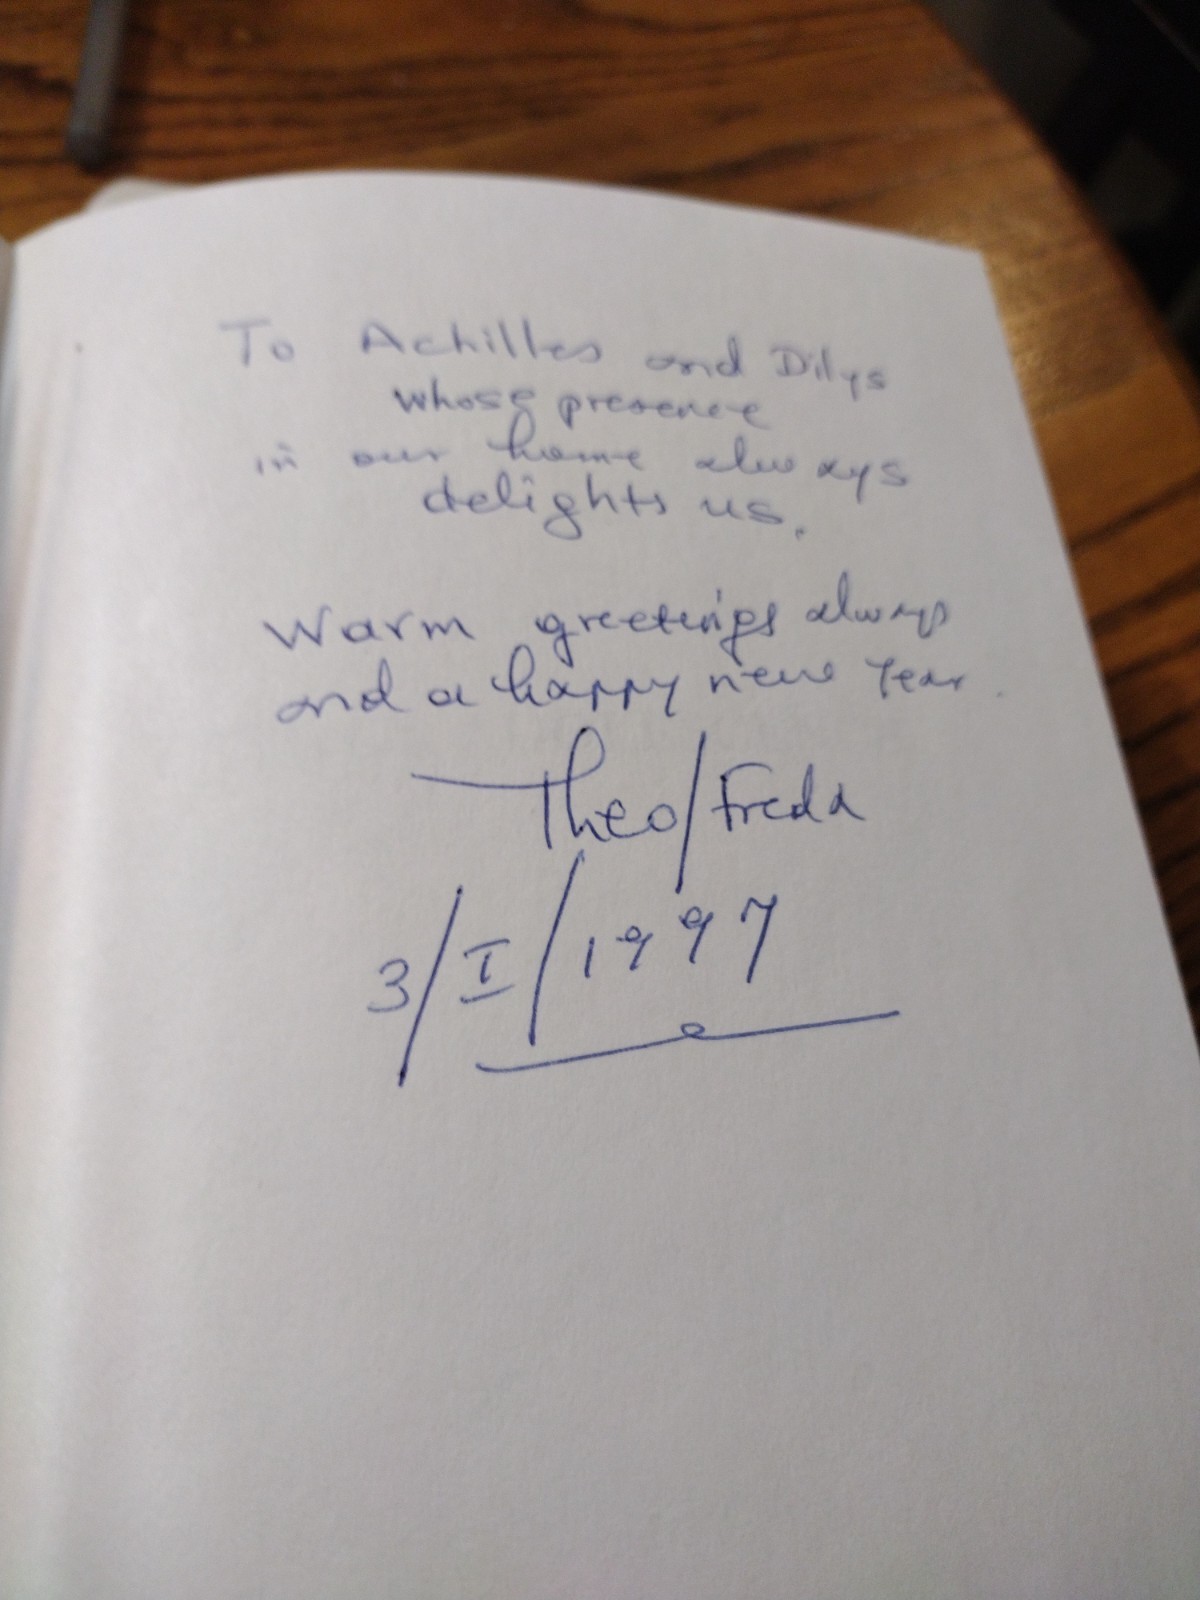 To Achilles and Dilys
whose presence
in our home always
delights us.
Warm greetings always
and a happy new Year.
Theo/Freda
3/I/1997